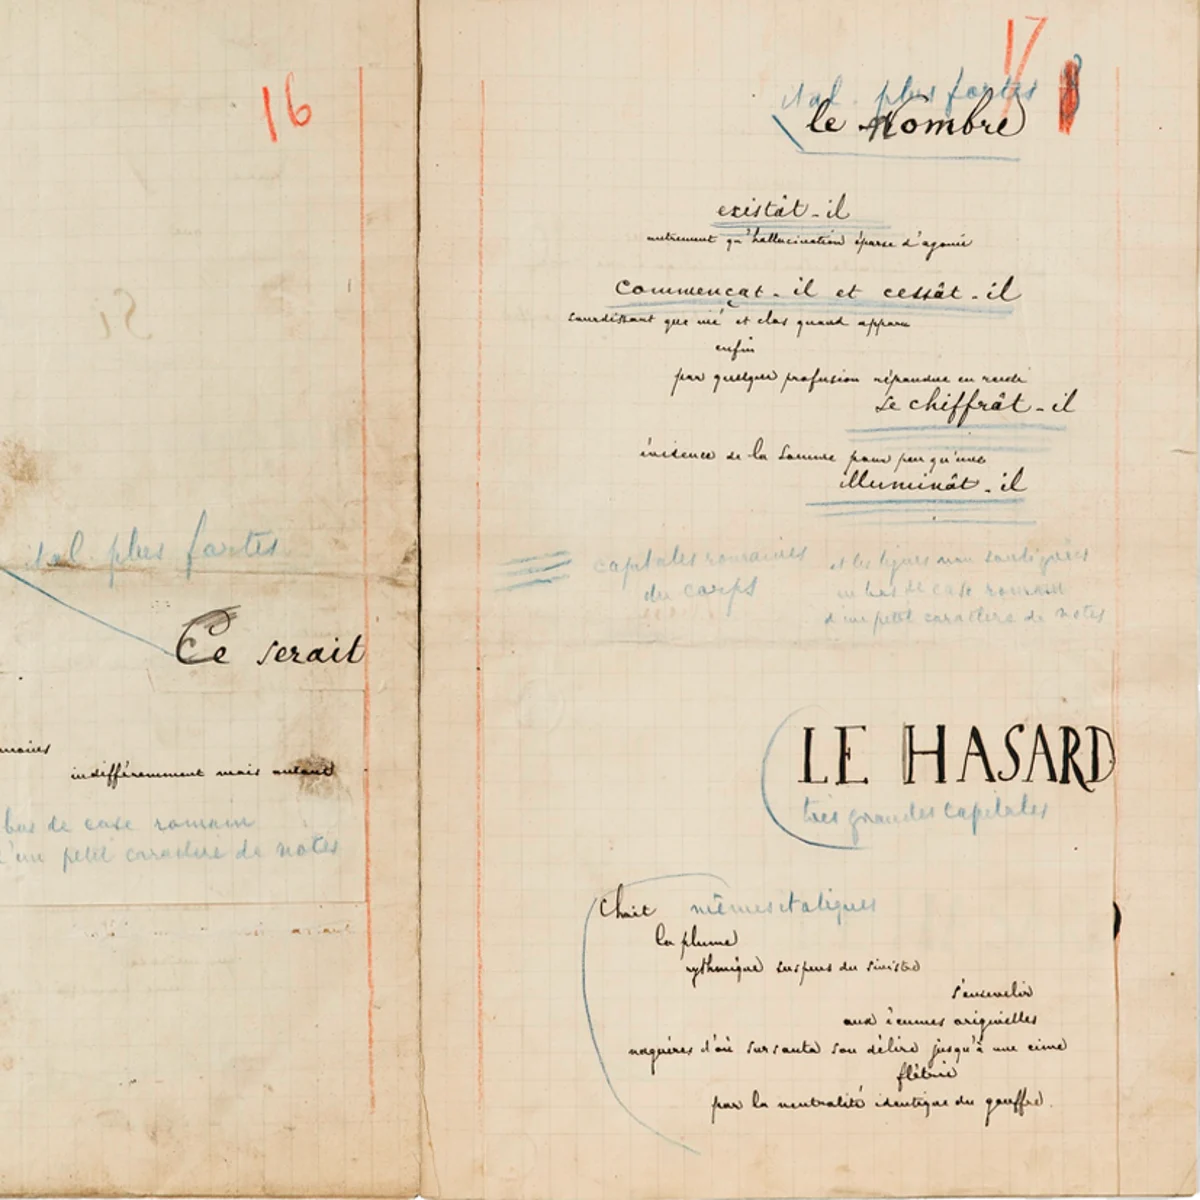 16
ital. plus fortes
Ce serait
indifféremment mais autant
bas de case romain
d'un petit caractère de notes
17
ital. plus fortes
le Nombre
existât-il
autrement qu'hallucination éparse d'agonie
commençât-il et cessât-il
sourdissant que nié et clos quand apparu
enfin
par quelque profusion répandue en rareté
se chiffrât-il
évidence de la somme pour peu qu'une
illuminât-il
capitales romaines
du corps
et les lignes non soulignées
en bas de case romain
d'un petit caractère de notes
LE HASARD
très grandes capitales
Choit
mêmes italiques
la plume
rythmique suspens du sinistre
s'ensevelir
aux écumes originelles
naguères d'où sursauta son délire jusqu'à une cime
flétrie
par la neutralité identique du gouffre.